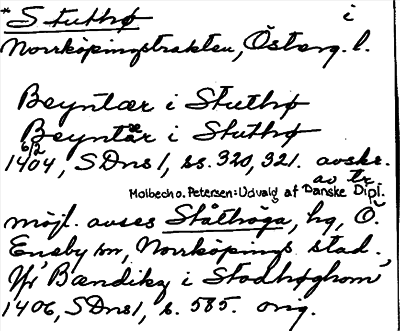 *Stuthø i
Norrköpingstrakten, Österg. l.
Beyntær i Stuthø
Beyntær i Stuthø
6/2
1404, SDns1, ss. 320, 321. avskr.
av tr.
Molbech o. Petersen: Udvalg af Danske Dipl.
möjl. avses Ståthöga, hg, Ö.
Eneby sn, Norrköpings stad.,
"Yr Bændikz i Stodhøghom"
1406, SDns1, s. 585. orig.